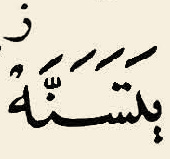 ز
يَتَسَنَّهْ